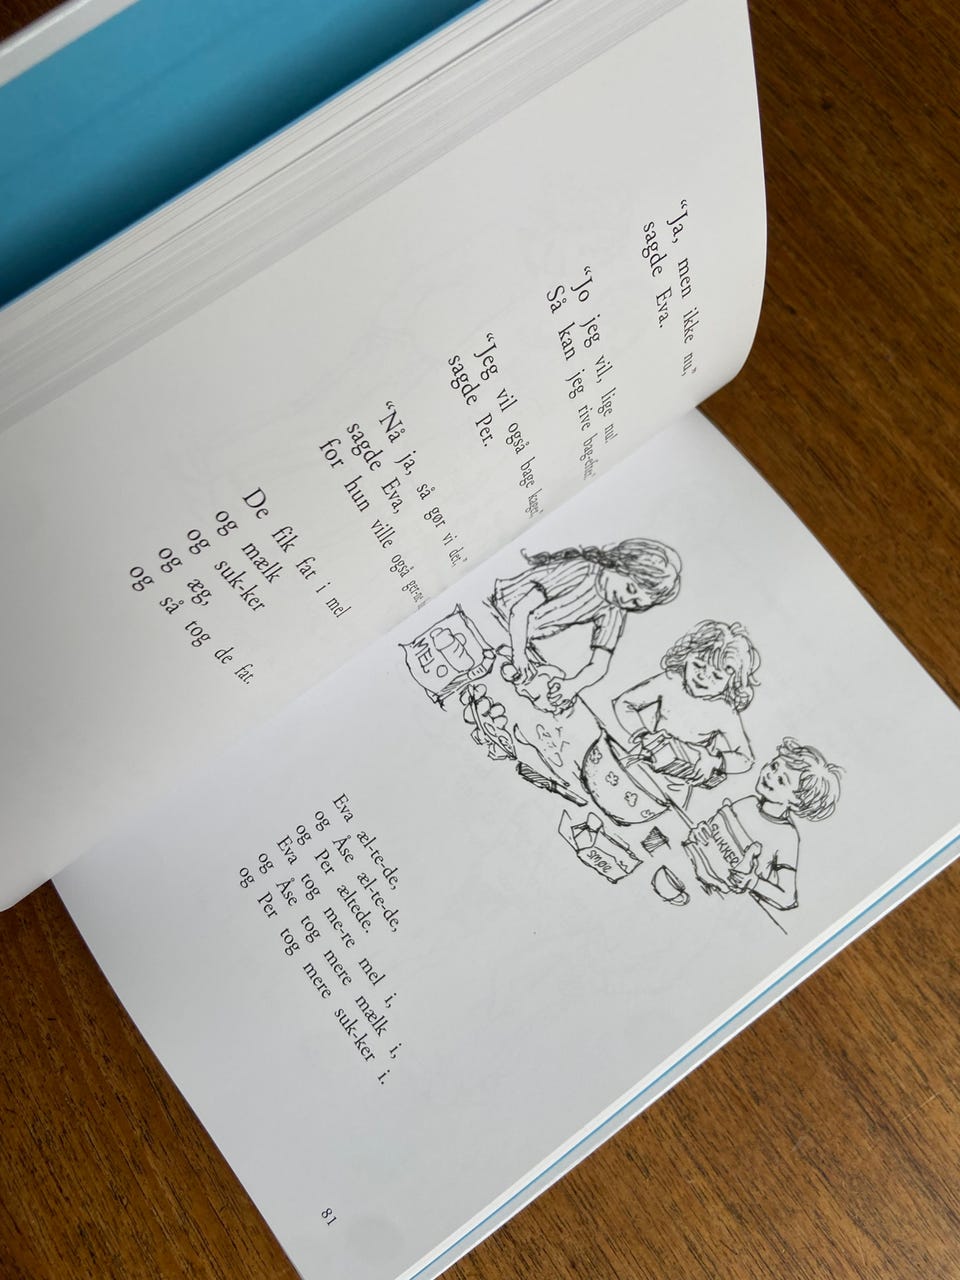 “Ja, men ikke nu,”
sagde Eva.
“Jo jeg vil, lige nu!
Så kan jeg rive bag-efter.”
“Jeg vil også bage kager,”
sagde Per.
“Nå ja, så gør vi det,”
sagde Eva,
for hun ville også
De fik fat i mel
og mælk
og suk-ker
og æg,
og så tog de fat.
MEL
SMØR
SUKKER
Eva æl-te-de,
og Åse æl-te-de,
og Per æltede.
Eva tog me-re mel i,
og Åse tog mere mælk i,
og Per tog mere suk-ker i.
81